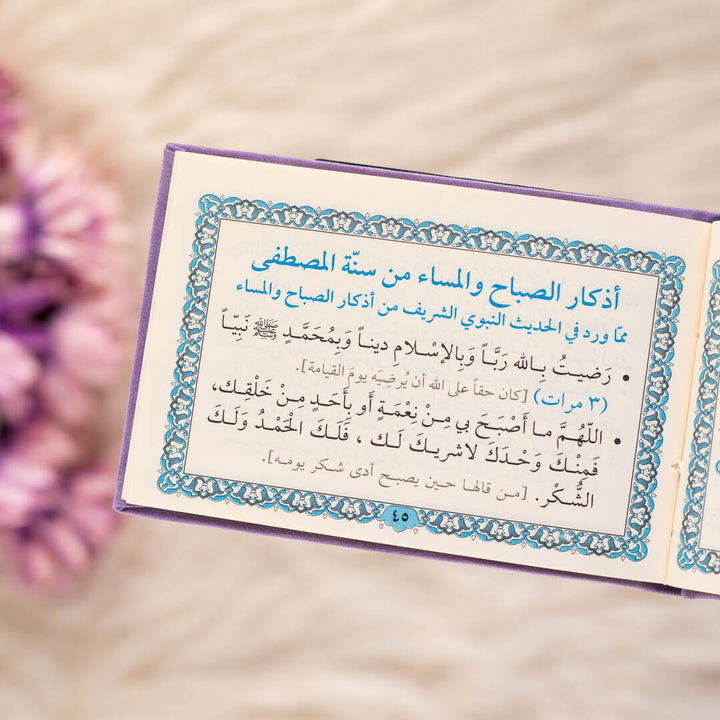 أذكار الصباح والمساء من سنّة المصطفى
ممّا ورد في الحديث النبوي الشريف من أذكار الصباح والمساء
• رَضيتُ بِـالله رَبَّـاً وَبِالإسْلامِ دينـاً وَبِمُحَمَّدٍ ﷺ نَبِيّـاً
(٣ مرات) [كان حقاً على الله أن يُرضِيَه يومَ القيامة].
• اللّهُمَّ مـا أَصْبَـحَ بي مِـنْ نِعْمَةٍ أَو بِأَحَدٍ مِـنْ خَلْقِـك،
فَمِنْـكَ وَحْـدَكَ لاشريـكَ لَـك ، فَلَـكَ الحَمْـدُ وَلَـكَ
الشُّكْر. [مـن قالهـا حين يصبـح أدى شكر يومـه].
٤٥